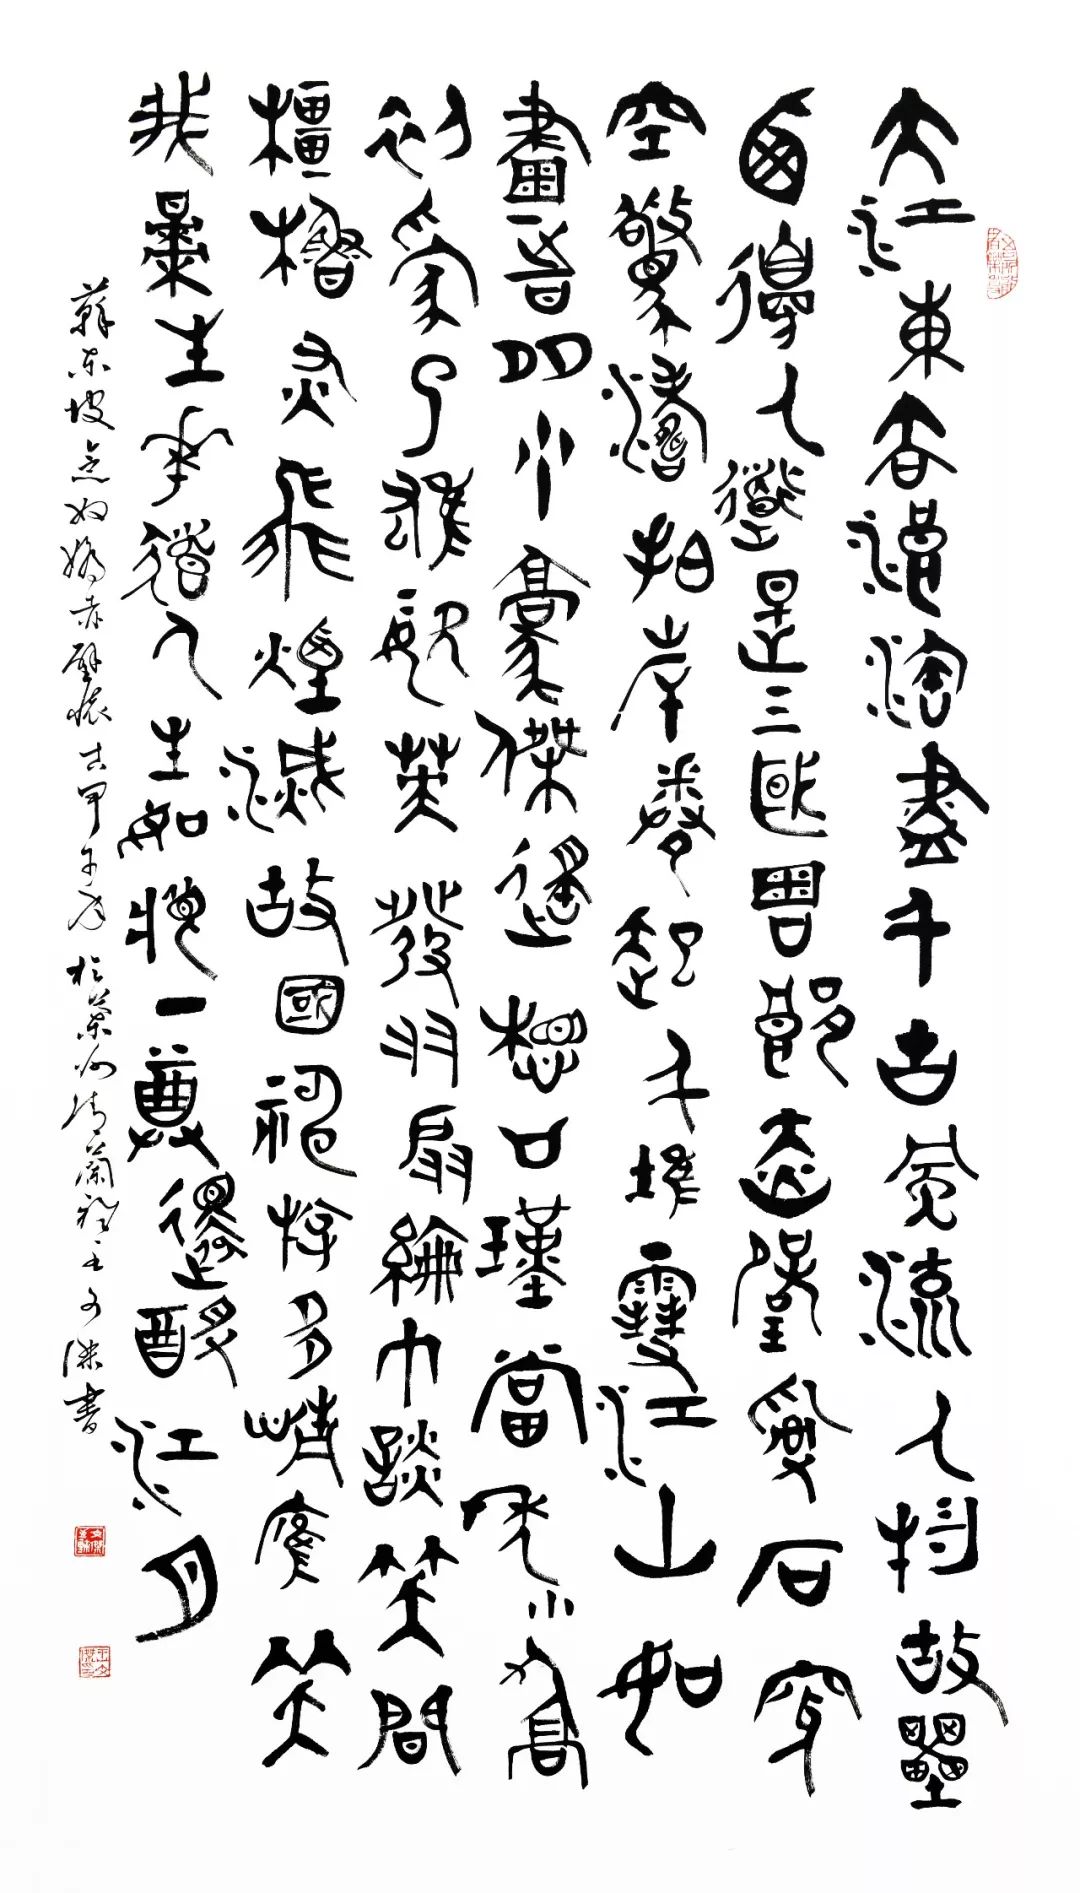 大江東去浪淘盡千古風流人物故壘
西邊人道是三國周郎赤壁亂石穿
空驚濤拍岸捲起千堆雪江山如
畫一時多少豪傑遙想公瑾當年小喬
初嫁了雄姿英發羽扇綸巾談笑間
檣櫓灰飛煙滅故國神游多情應笑
我早生華髮人生如夢一尊還酹江月
蘇東坡念奴嬌赤壁懷古甲午年於蘭州蘭軒王文傑書